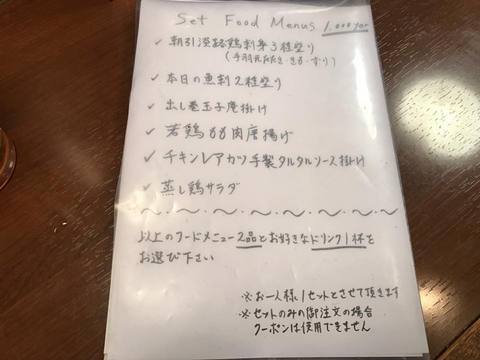 Set Food Menus 1,000yen
✓ 朝引淡路鶏刺身3種盛り
(手羽元たたき・きも・ずり)
✓ 本日の魚刺2種盛り
✓ 出し巻玉子庵掛け
✓ 若鶏もも肉唐揚げ
✓ チキンレアカツ手製タルタルソース掛け
✓ 蒸し鶏サラダ
以上のフードメニュー2品とお好きなドリンク1杯を
お選び下さい
※お一人様1セットとさせて頂きます
※セットのみの御注文の場合
クーポンは使用できません